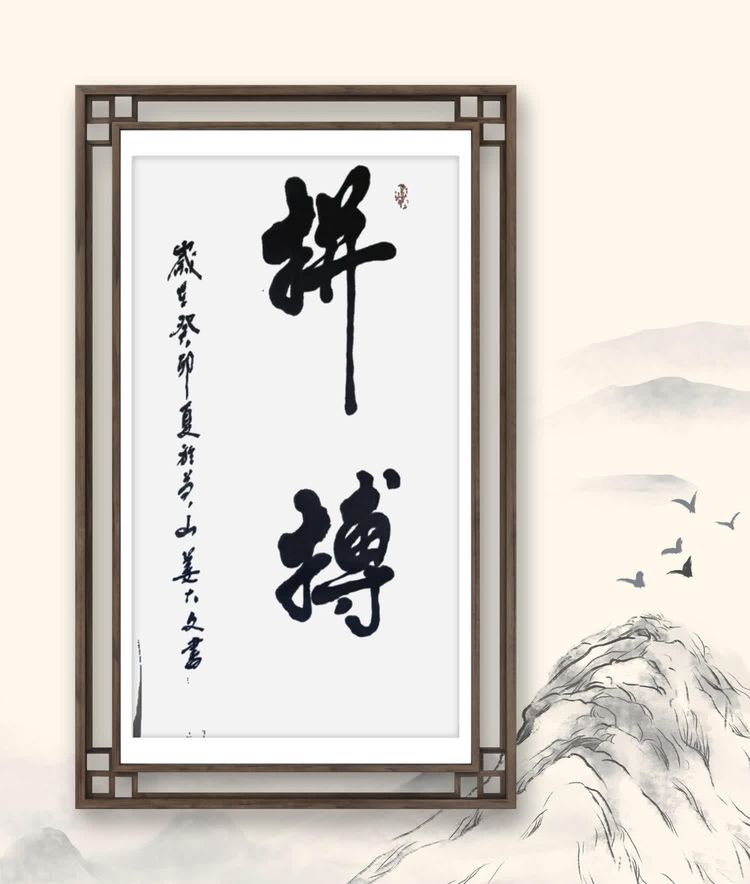 拼搏
歲在癸卯夏於
山姜大文書